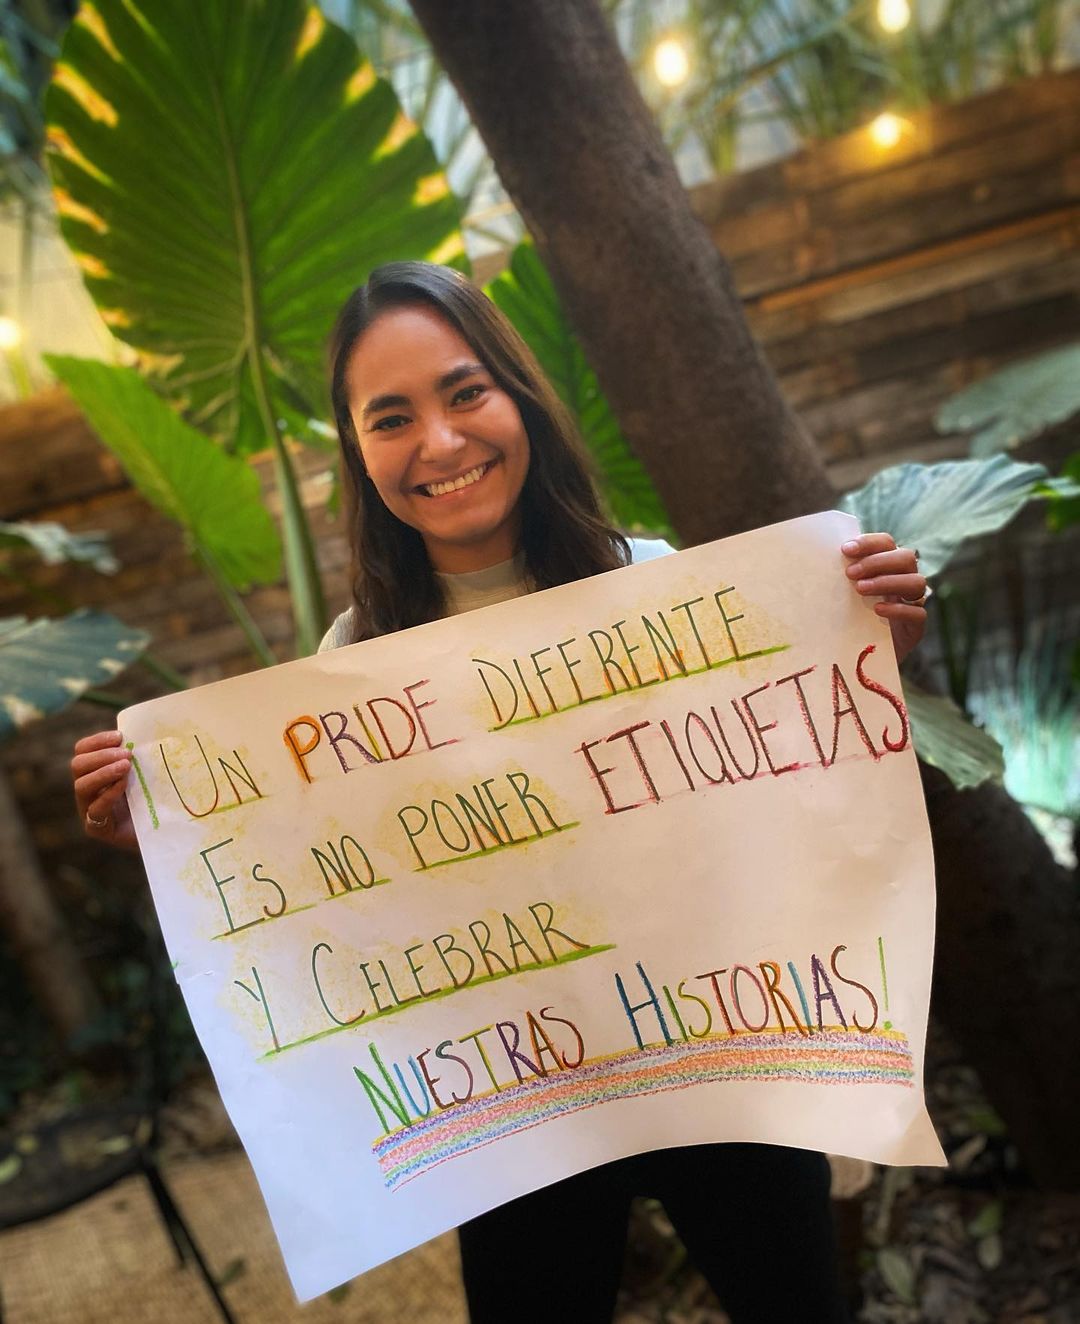 ¡UN PRIDE DIFERENTE
ES NO PONER ETIQUETAS
Y CELEBRAR
NUESTRAS HISTORIAS!